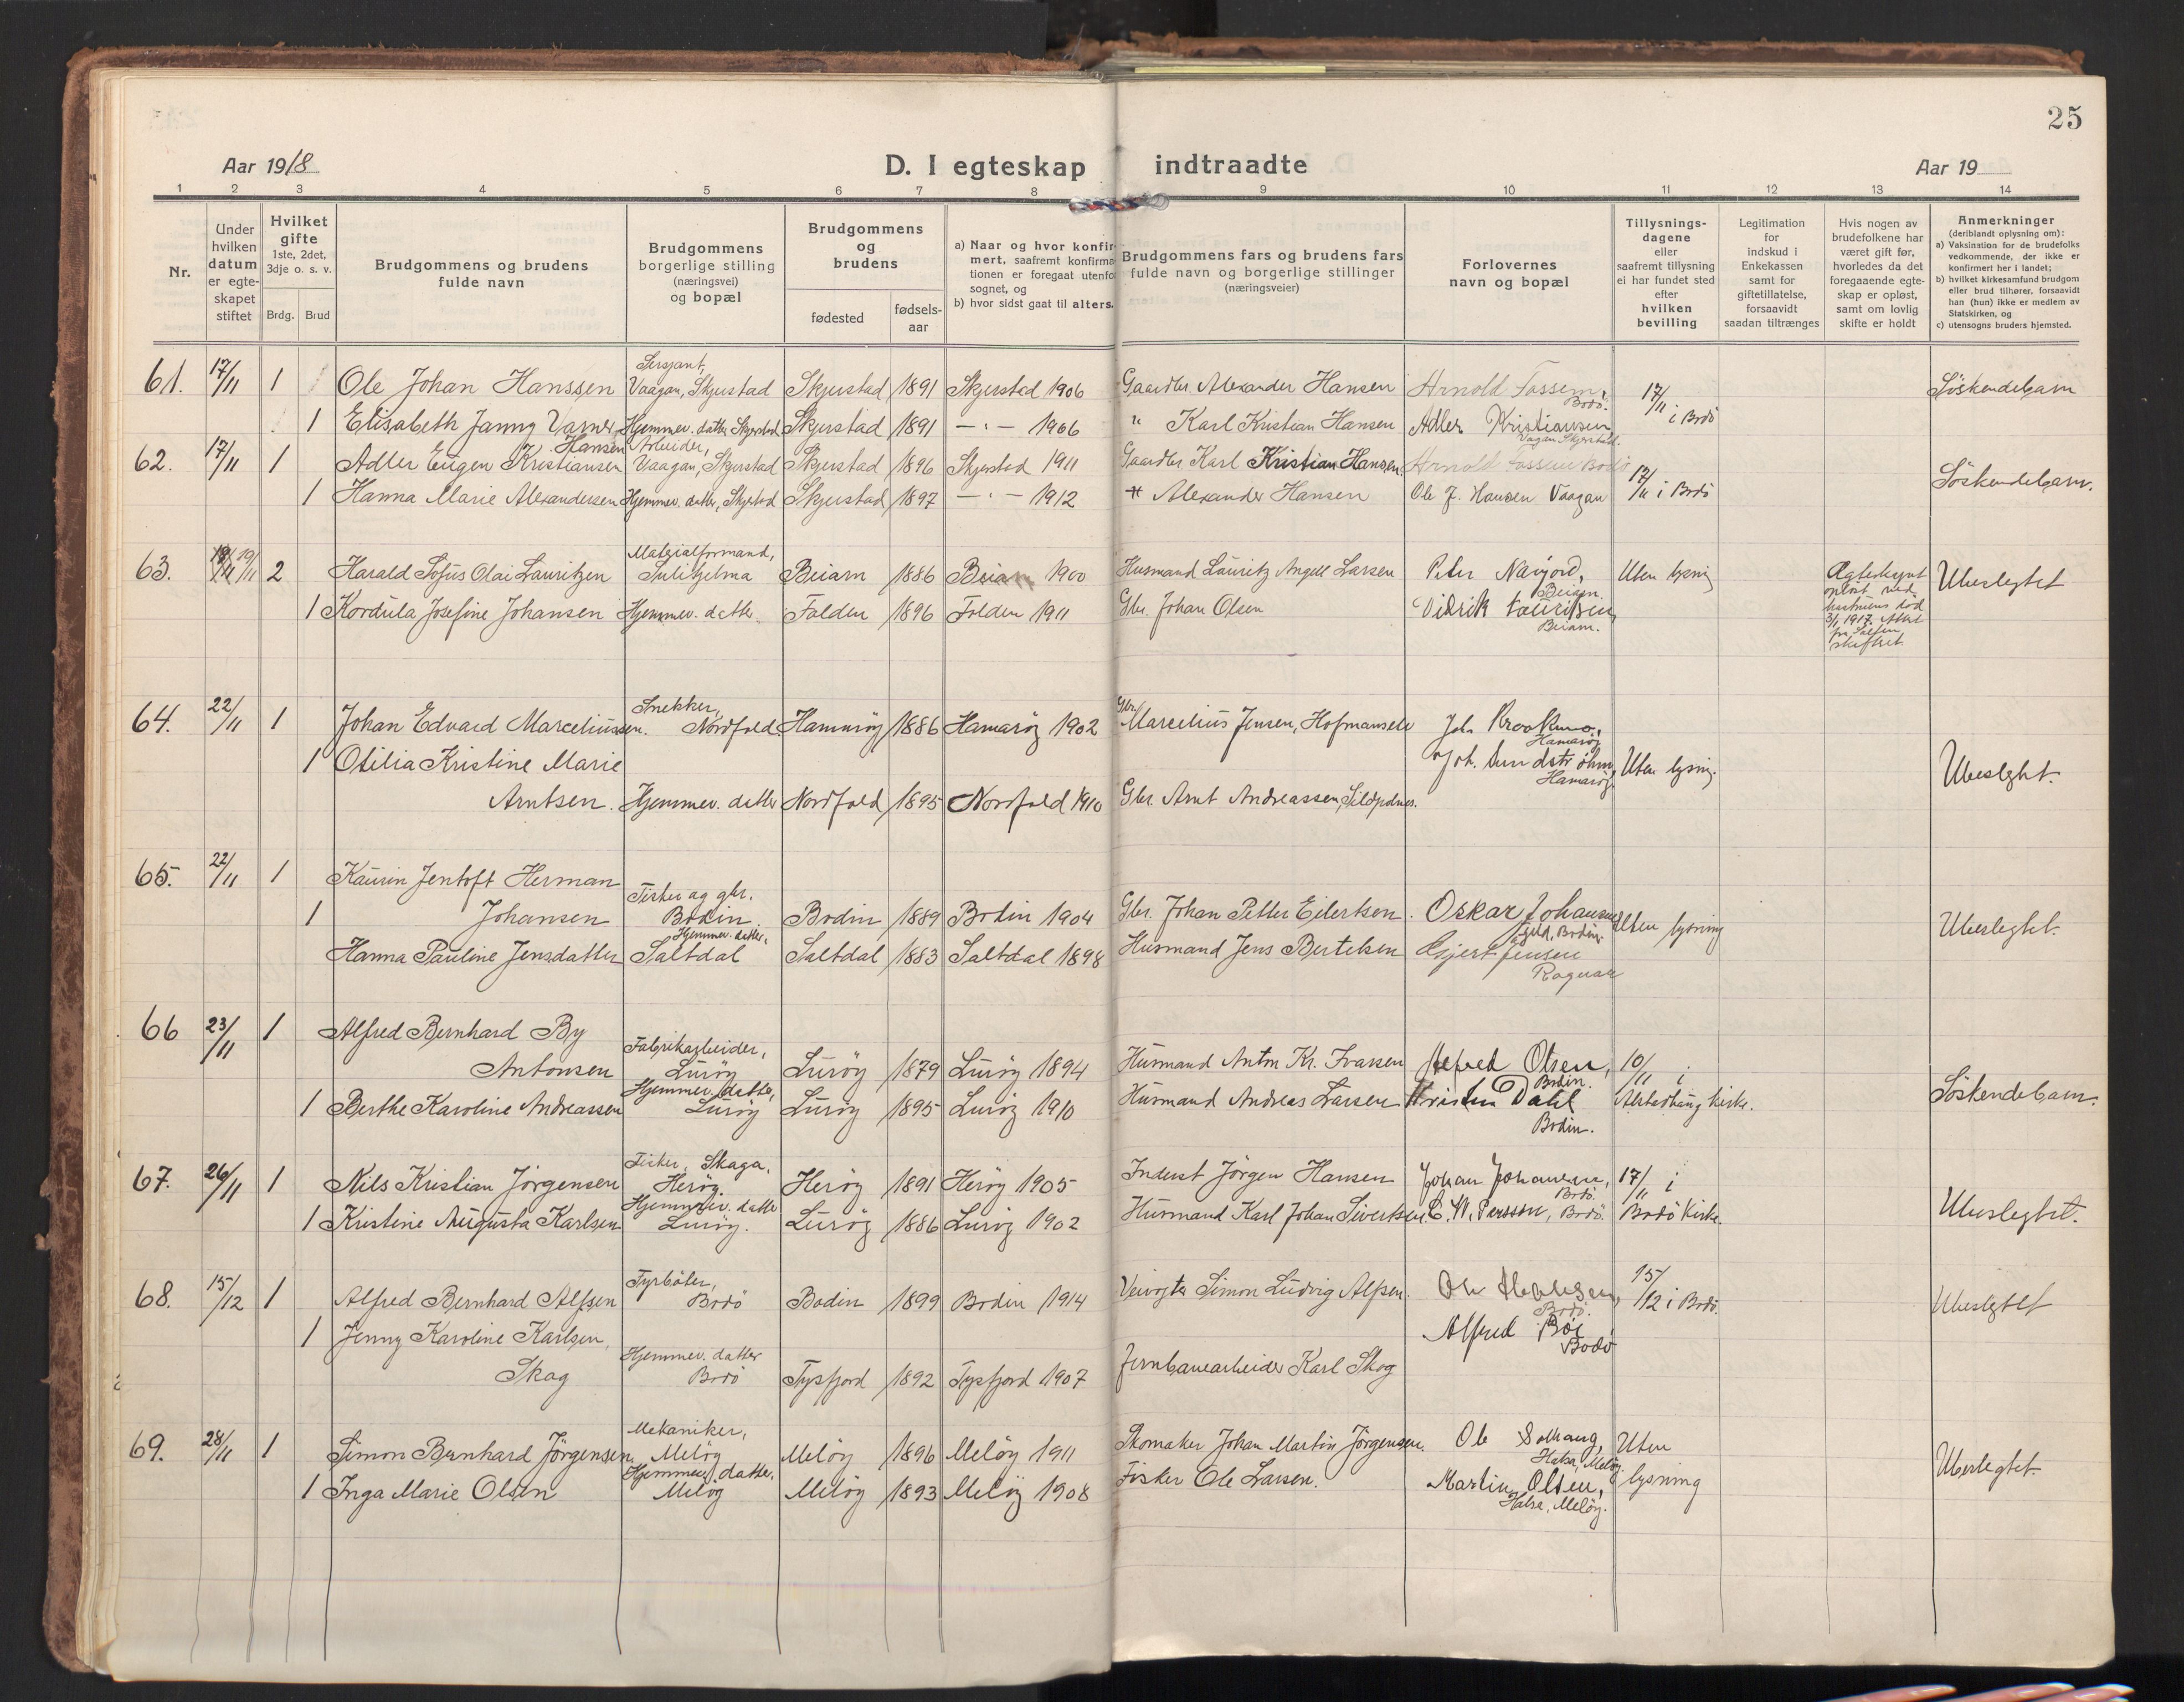 25
Aar 1918
D. I egteskap indtraadte
Aar 19
1 2 3 4 5 6 7 8 9 10 11 12 13 14
Nr.
Under hvilken datum er egte-skapet stiftet
Hvilket gifte 1ste, 2det, 3dje o. s. v.
Brdg. Brud
Brudgommens og brudens fulde navn
Brudgommens borgerlige stilling (næringsvei) og bopæl
Brudgommens og brudens
fødested
fødsels-aar
a) Naar og hvor konfir-mert, saafremt konfirma-tionen er foregaat utenfor sognet, og
b) hvor sidst gaat til alters.
Brudgommens fars og brudens fars fulde navn og borgerlige stillinger (næringsveier)
Forlovernes navn og bopæl
Tillysnings-dagene eller saafremt tillysning ei har fundet sted efter hvilken bevilling
Legitimation for indskud i Enkekassen samt for giftetillatelse, forsaavidt saadan tiltrænges
Hvis nogen av brudefolkene har været gift før, hvorledes da det foregaaende egte-skap er opløst, samt om lovlig skifte er holdt
Anmerkninger (deriblandt oplysning om):
a) Vaksination for de brudefolks vedkommende, der ikke er konfirmert her i landet;
b) hvilket kirkesamfund brudgom eller brud tilhører, forsaavidt han (hun) ikke er medlem av Statskirken, og
c) utensogns bruders hjemsted.
61. 17/11 1 Ole Johan Hanssen Sersjant, Vaagan, Skjerstad Skjerstad 1891 Skjerstad 1906 Gaardbr. Alexander Hansen Arnold Fossem, Bodö. 17/11 i Bodö Söskendebarn
1 Elisabeth Janny Varner Hansen Hjemmev. datter Skjerstad Skjerstad 1891 — " — 1906 " Karl Kristian Hansen Adler Kristiansen Vagan Skjerstad.
62. 17/11 1 Adler Eugen Kristiansen Arbeider, Vaagan, Skjerstad Skjerstad 1896 Skjerstad 1911 Gaardbr. Karl Kristian Hansen. Arnold Fossem Bodö 17/11 i Bodö Söskendebarn.
1 Hanna Marie Alexandersen Hjemmev. datter, Skjerstad Skjerstad 1897 — " — 1912 " Alexander Hansen Ole J. Hansen Vaagan
63. 19/11 2 Harald Sofus Olai Lauritzen Materialformand, Sulitjelma Beiarn 1886 Beiarn 1900 Husmand Lauritz Angell Larsen Peter Nævjord, Beiarn. Uten lysning Ægteskapet opløst ved hustruens død 3/1 1917. Attest fra Salten skifteret. Ubeslegtet
1 Kordula Josefine Johansen Hjemmev. datter Folden 1896 Folden 1911 Gbr. Johan Olsen Vidrik Lauritsen, Beiarn.
64. 22/11 1 Johan Edvard Marceliussen. Snekker, Nordfold Hamarøy 1886 Hamarøy 1902 Gbr. Marcelius Jensen, Joh. Kraakmo, Hamarøy
1 Otilia Kristine Marie Hamarøy. Uten lysning. Ubeslegtet.
Arntsen. Hjemmev. datter Nordfold 1895 Nordfold 1910 Gbr. Arnt Andreassen, Sildpdnes.
65. 22/11 1 Kaurin Jentoft Herman
1 Johansen Fisker og gbr. Bodin Bodin 1889 Bodin 1904 Gbr. Johan Petter Eilertsen. Oskar Johansen Bodin. Uten lysning Ubeslegtet.
Hanna Pauline Jensdatter Hjemmev. datter, Saltdal Saltdal 1883 Saltdal 1898 Husmand Jens Bertelsen Gjert Jensen Rognan
66 23/11 1 Alfred Bernhard By
Antonsen Fabrikarbeider, Lurøy Lurøy 1879 Lurøy 1894 Husmand Anton Kr. Ivarsen Alfred Olsen, Bodin. 10/11 i
1 Berthe Karoline Andreassen Hjemmev. datter, Lurøy Lurøy 1895 Lurøy 1910 Husmand Andreas Larsen Kristen Dahl Bodin. Alstadhaug kirke. Söskendebarn.
67. 26/11 1 Nils Kristian Jörgensen Fisker, Skaga, Herøy. Herøy 1891 Herøy 1905 Inderst Jörgen Hansen Johan Johansen, Bodö. 17/11 i
1 Kristine Augusta Karlsen Hjemmev. datter Lurøy. Lurøy 1886 Lurøy 1902 Husmand Karl Johan Sivertsen. C. W. Persson, Bodö. Bodö Kirke. Ubeslegtet.
68. 15/12 1 Alfred Bernhard Alfsen Fyrböter, Bodö Bodin 1899 Bodin 1914 Veivogter Simon Ludvig Alfsen. Bodö. 15/12 i Bodö. Ubeslegtet
1 Jenny Karoline Karlsen, Alfred Böe Bodö
Skog Hjemmev. datter Bodö Tysfjord 1892 Tysfjord 1907 Jernbanearbeider Karl Skog
69. 28/11 1 Simon Bernhard Jörgensen Mekaniker, Meløy Meløy 1896 Meløy 1911 Skomaker Johan Martin Jörgensen. Ole Solhaug, Halsa, Meløy. Uten Ubeslegtet.
1 Inga Marie Olsen Hjemmev. datter, Meløy Meløy 1893 Meløy 1908 Fisker Ole Larsen. Martin Olsen, Halsa, Meløy. lysning